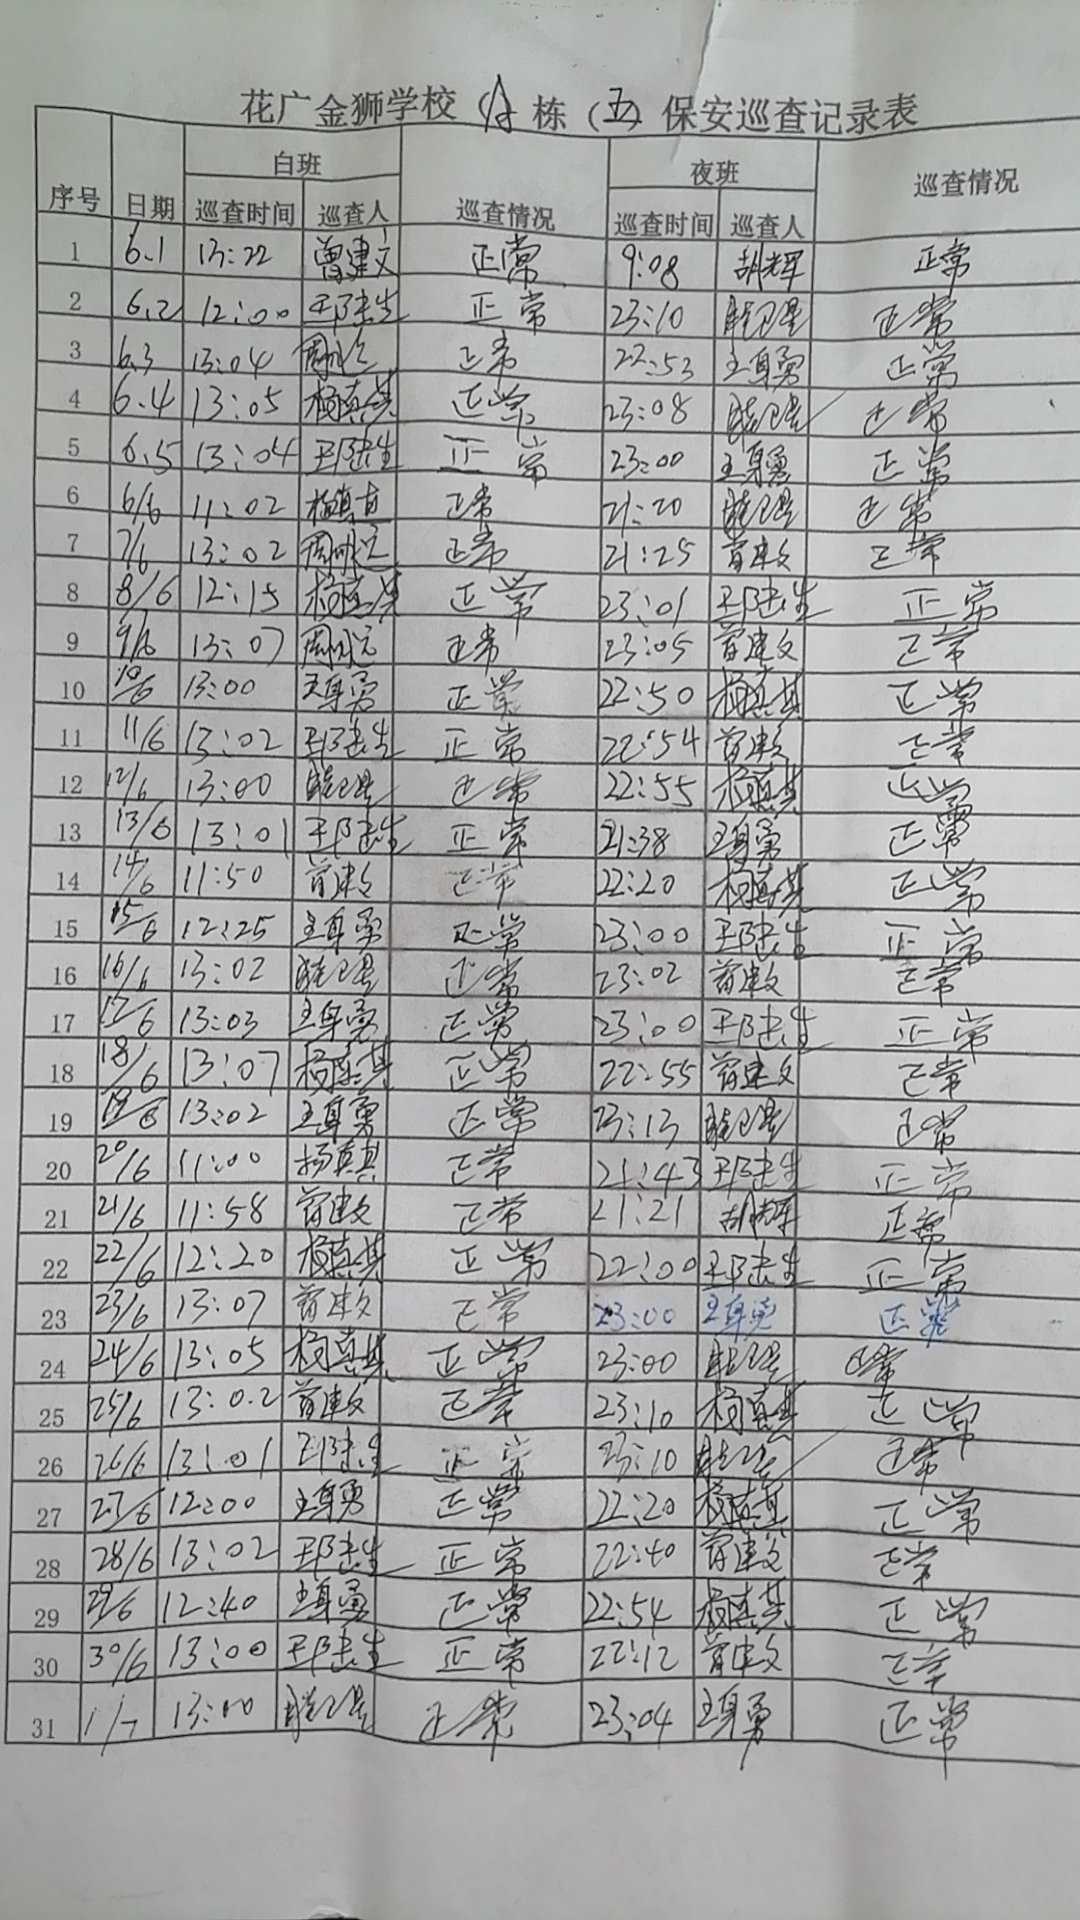 花广金狮学校（A）栋（五）保安巡查记录表
白班 夜班
序号 日期 巡查时间 巡查人 巡查情况 巡查时间 巡查人 巡查情况
1 6.1 13:22 曾建文 正常 9:08 胡辉 正常
2 6.2 12:00 正常 23:10 正常
3 6.3 13:04 正常 22:53 王身勇 正常
4 6.4 13:05 杨真其 正常 23:08 正常
5 6.5 13:04 正常 23:00 王身勇 正常
6 6/6 11:02 杨真其 正常 21:20 正常
7 7/6 13:02 正常 21:25 曾建文 正常
8 8/6 12:15 杨真其 正常 23:01 正常
9 9/6 13:07 正常 23:05 曾建文 正常
10 10/6 13:00 王身勇 正常 22:50 杨真其 正常
11 11/6 13:02 正常 22:54 曾建文 正常
12 12/6 13:00 正常 22:55 杨真其 正常
13 13/6 13:01 正常 21:38 王身勇 正常
14 14/6 11:50 曾建文 正常 22:20 杨真其 正常
15 15/6 12:25 王身勇 正常 23:00 正常
16 16/6 13:02 正常 23:02 曾建文 正常
17 17/6 13:03 王身勇 正常 23:00 正常
18 18/6 13:07 杨真其 正常 22:55 曾建文 正常
19 19/6 13:02 王身勇 正常 23:13 正常
20 20/6 11:00 杨真其 正常 21:43 正常
21 21/6 11:58 曾建文 正常 21:21 正常
22 22/6 12:20 杨真其 正常 22:00 正常
23 23/6 13:07 曾建文 正常 23:00 王身勇 正常
24 24/6 13:05 杨真其 正常 23:00 正常
25 25/6 13:02 曾建文 正常 23:10 杨真其 正常
26 26/6 13:01 正常 23:10 正常
27 27/6 12:00 王身勇 正常 22:20 杨真其 正常
28 28/6 13:02 正常 22:40 曾建文 正常
29 29/6 12:40 王身勇 正常 22:54 杨真其 正常
30 30/6 13:00 正常 22:12 曾建文 正常
31 1/7 13:00 正常 23:04 王身勇 正常